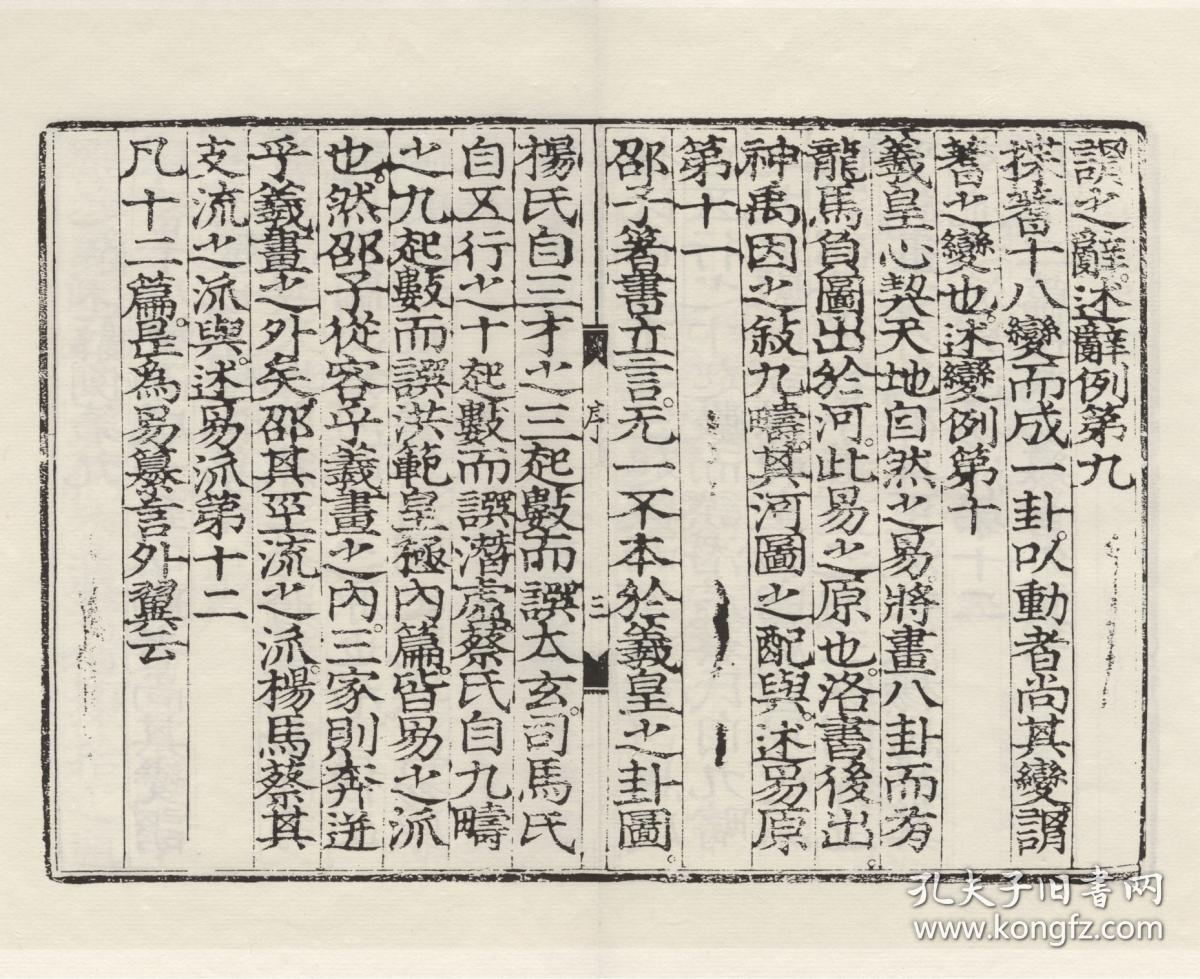 謂之辭述辭例第九
揲蓍十八變而成一卦以動者尚其變謂
蓍之變也述變例第十
羲皇心契天地自然之易將畫八卦而有
龍馬負圖出於河此易之原也洛書後出
神禹因之敘九疇其河圖之配與述易原
第十一
邵子著書立言无一不本於羲皇之卦圖
序
三
楊氏自三才之三起數而譔太玄司馬氏
自五行之十起數而譔潛虛蔡氏自九疇
之九起數而譔洪範皇極內篇皆易之派
也然邵子從容乎羲畫之內三家則奔迸
乎羲畫之外矣邵其巠流之派楊馬蔡其
支流之派與述易派第十二
凡十二篇是為易纂言外翼云
孔夫子旧书网
www.kongfz.com